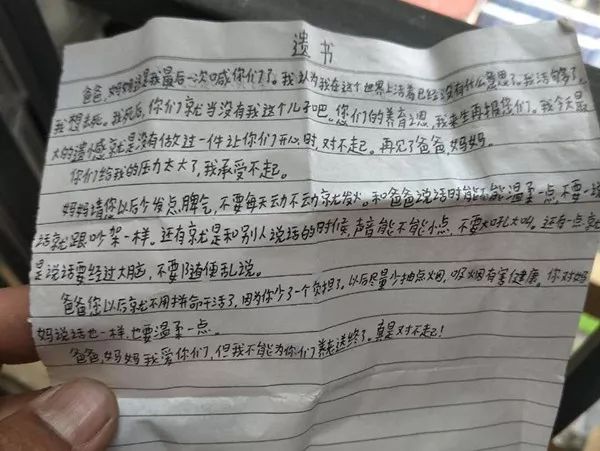 遗书
爸爸,妈妈这是我最后一次喊你们了。我认为我在这个世界上活着已经没有什么意思了,我活够了。
我想去死。我死后,你们就当没有我这个儿子吧。您们的养育之恩,我来生再报您们。我今天最
大的遗憾就是没有做过一件让你们开心的时,对不起。再见了爸爸,妈妈。
你们给我的压力太大了,我承受不起。
妈妈请您以后少发点脾气,不要每天动不动就发火。和爸爸说话时能不能温柔一点,不要一说
话就跟吵架一样。还有就是和别人说话的时候,声音能不能小点,不要大吼大叫。还有一点就
是说话要经过大脑,不要随便乱说。
爸爸您以后就不用拼命干活了,因为你少了一个负担了。以后尽量少抽点烟,吸烟有害健康。你对妈
妈说话也一样,也要温柔一点。
爸爸,妈妈我爱你们,但我不能为你们养老送终了。真是对不起!